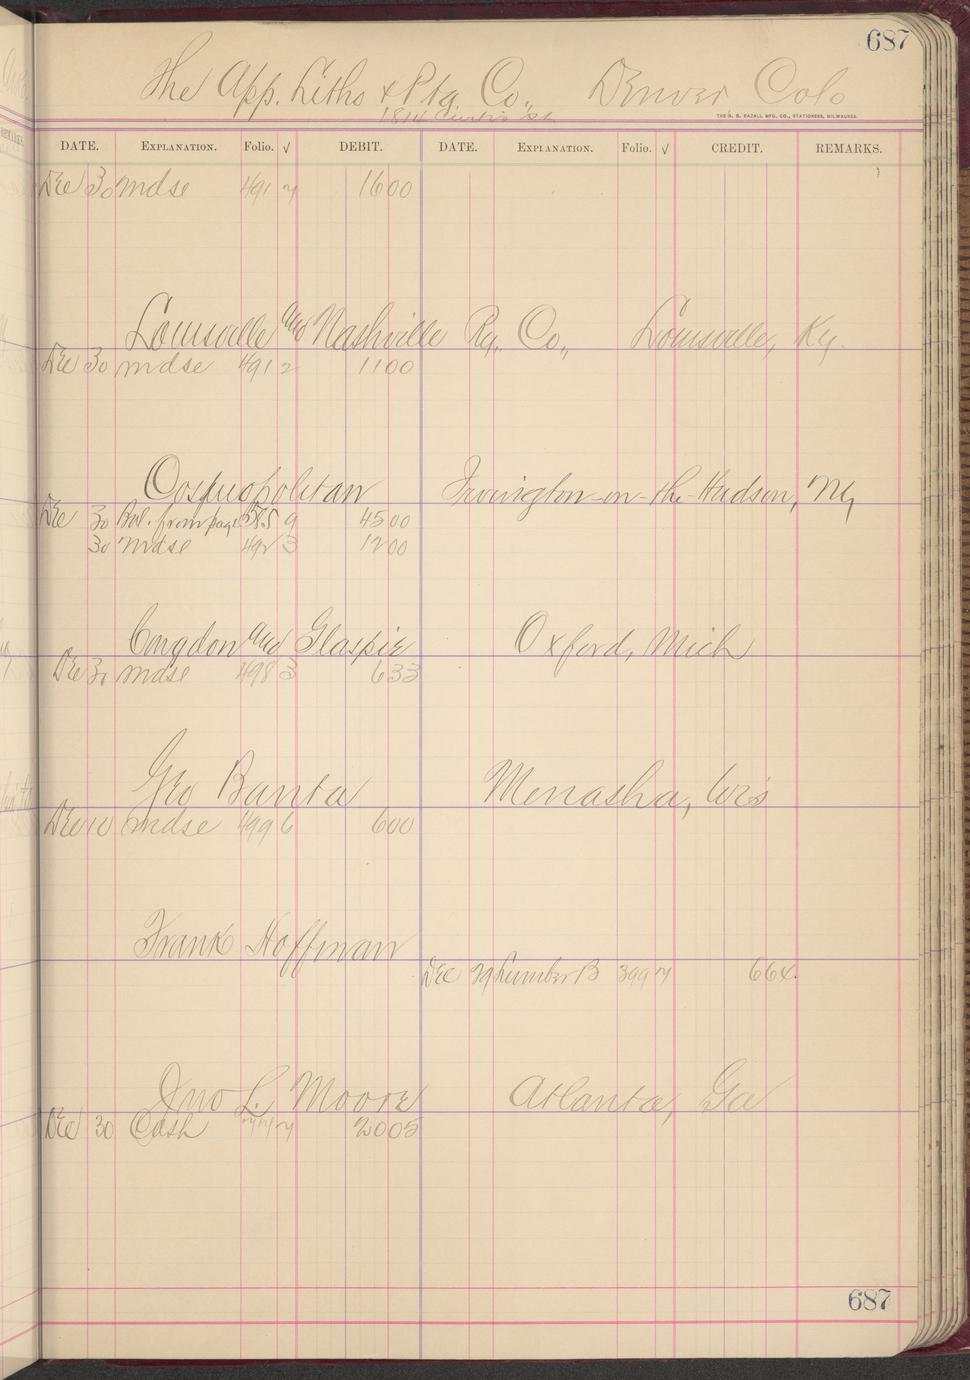 687
The App. Litho & Ptg. Co., Denver Colo
1814 Curtis St
THE S. E. TAZALL MFG. CO., STATIONERS, MILWAUKEE.
DATE. EXPLANATION. Folio. √ DEBIT. DATE. EXPLANATION. Folio. √ CREDIT. REMARKS.
Dec 30 mdse 491 7 1600
Louisville and Nashville Ry. Co., Louisville, Ky.
Dec 30 mdse 491 2 1100
Cosmopolitan Irvington-on-the-Hudson, NY
Dec 30 Bal. from page 585 9 4500
30 mdse 492 3 1200
Congdon and Glaspie Oxford, Mich
Dec 30 mdse 498 3 633
Geo Banta Menasha, Wis
Dec 10 mdse 499 6 600
Frank Hoffman
Dec 29 Lumber B 399 7 664
Jno L. Moore Atlanta, Ga
Dec 30 Cash 777 2005
687